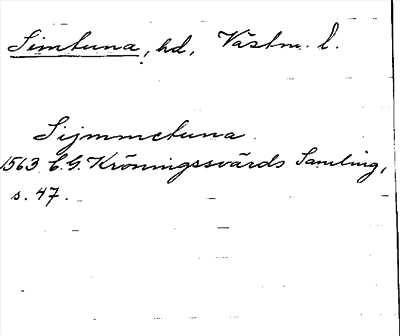 Simtuna, hd, Västm. l.
Sijmmetuna.
1563 C.G. Kröningssvärds Samling,
s. 47.